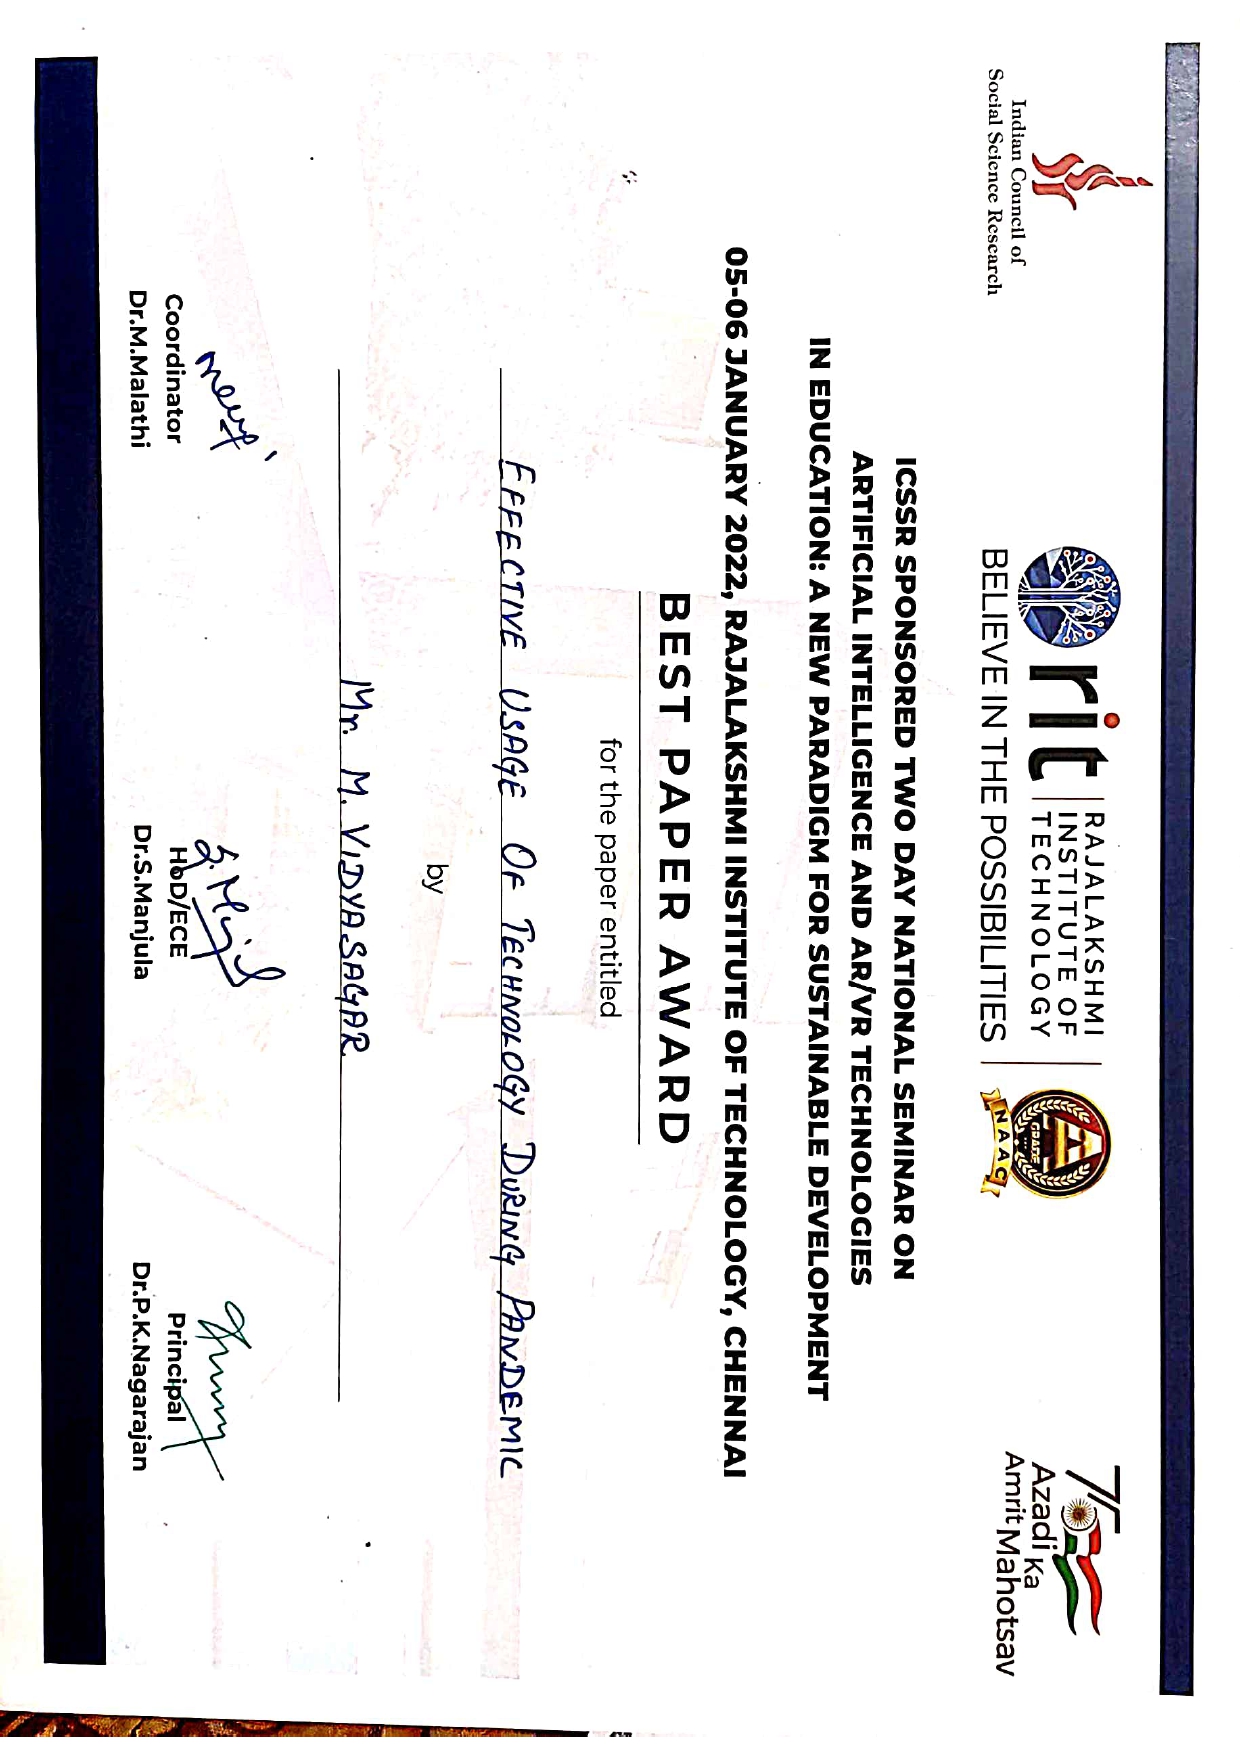 Indian Council of
Social Science Research
rit
RAJALAKSHMI
INSTITUTE OF
TECHNOLOGY
BELIEVE IN THE POSSIBILITIES
A
GRADE
NAAC
75
Azadi Ka
Amrit Mahotsav
ICSSR SPONSORED TWO DAY NATIONAL SEMINAR ON
ARTIFICIAL INTELLIGENCE AND AR/VR TECHNOLOGIES
IN EDUCATION: A NEW PARADIGM FOR SUSTAINABLE DEVELOPMENT
05-06 JANUARY 2022, RAJALAKSHMI INSTITUTE OF TECHNOLOGY, CHENNAI
BEST PAPER AWARD
for the paper entitled
EFFECTIVE USAGE OF TECHNOLOGY DURING PANDEMIC
by
Mr. M. VIDYASAGAR
Coordinator
Dr.M.Malathi
HoD/ECE
Dr.S.Manjula
Principal
Dr.P.K.Nagarajan